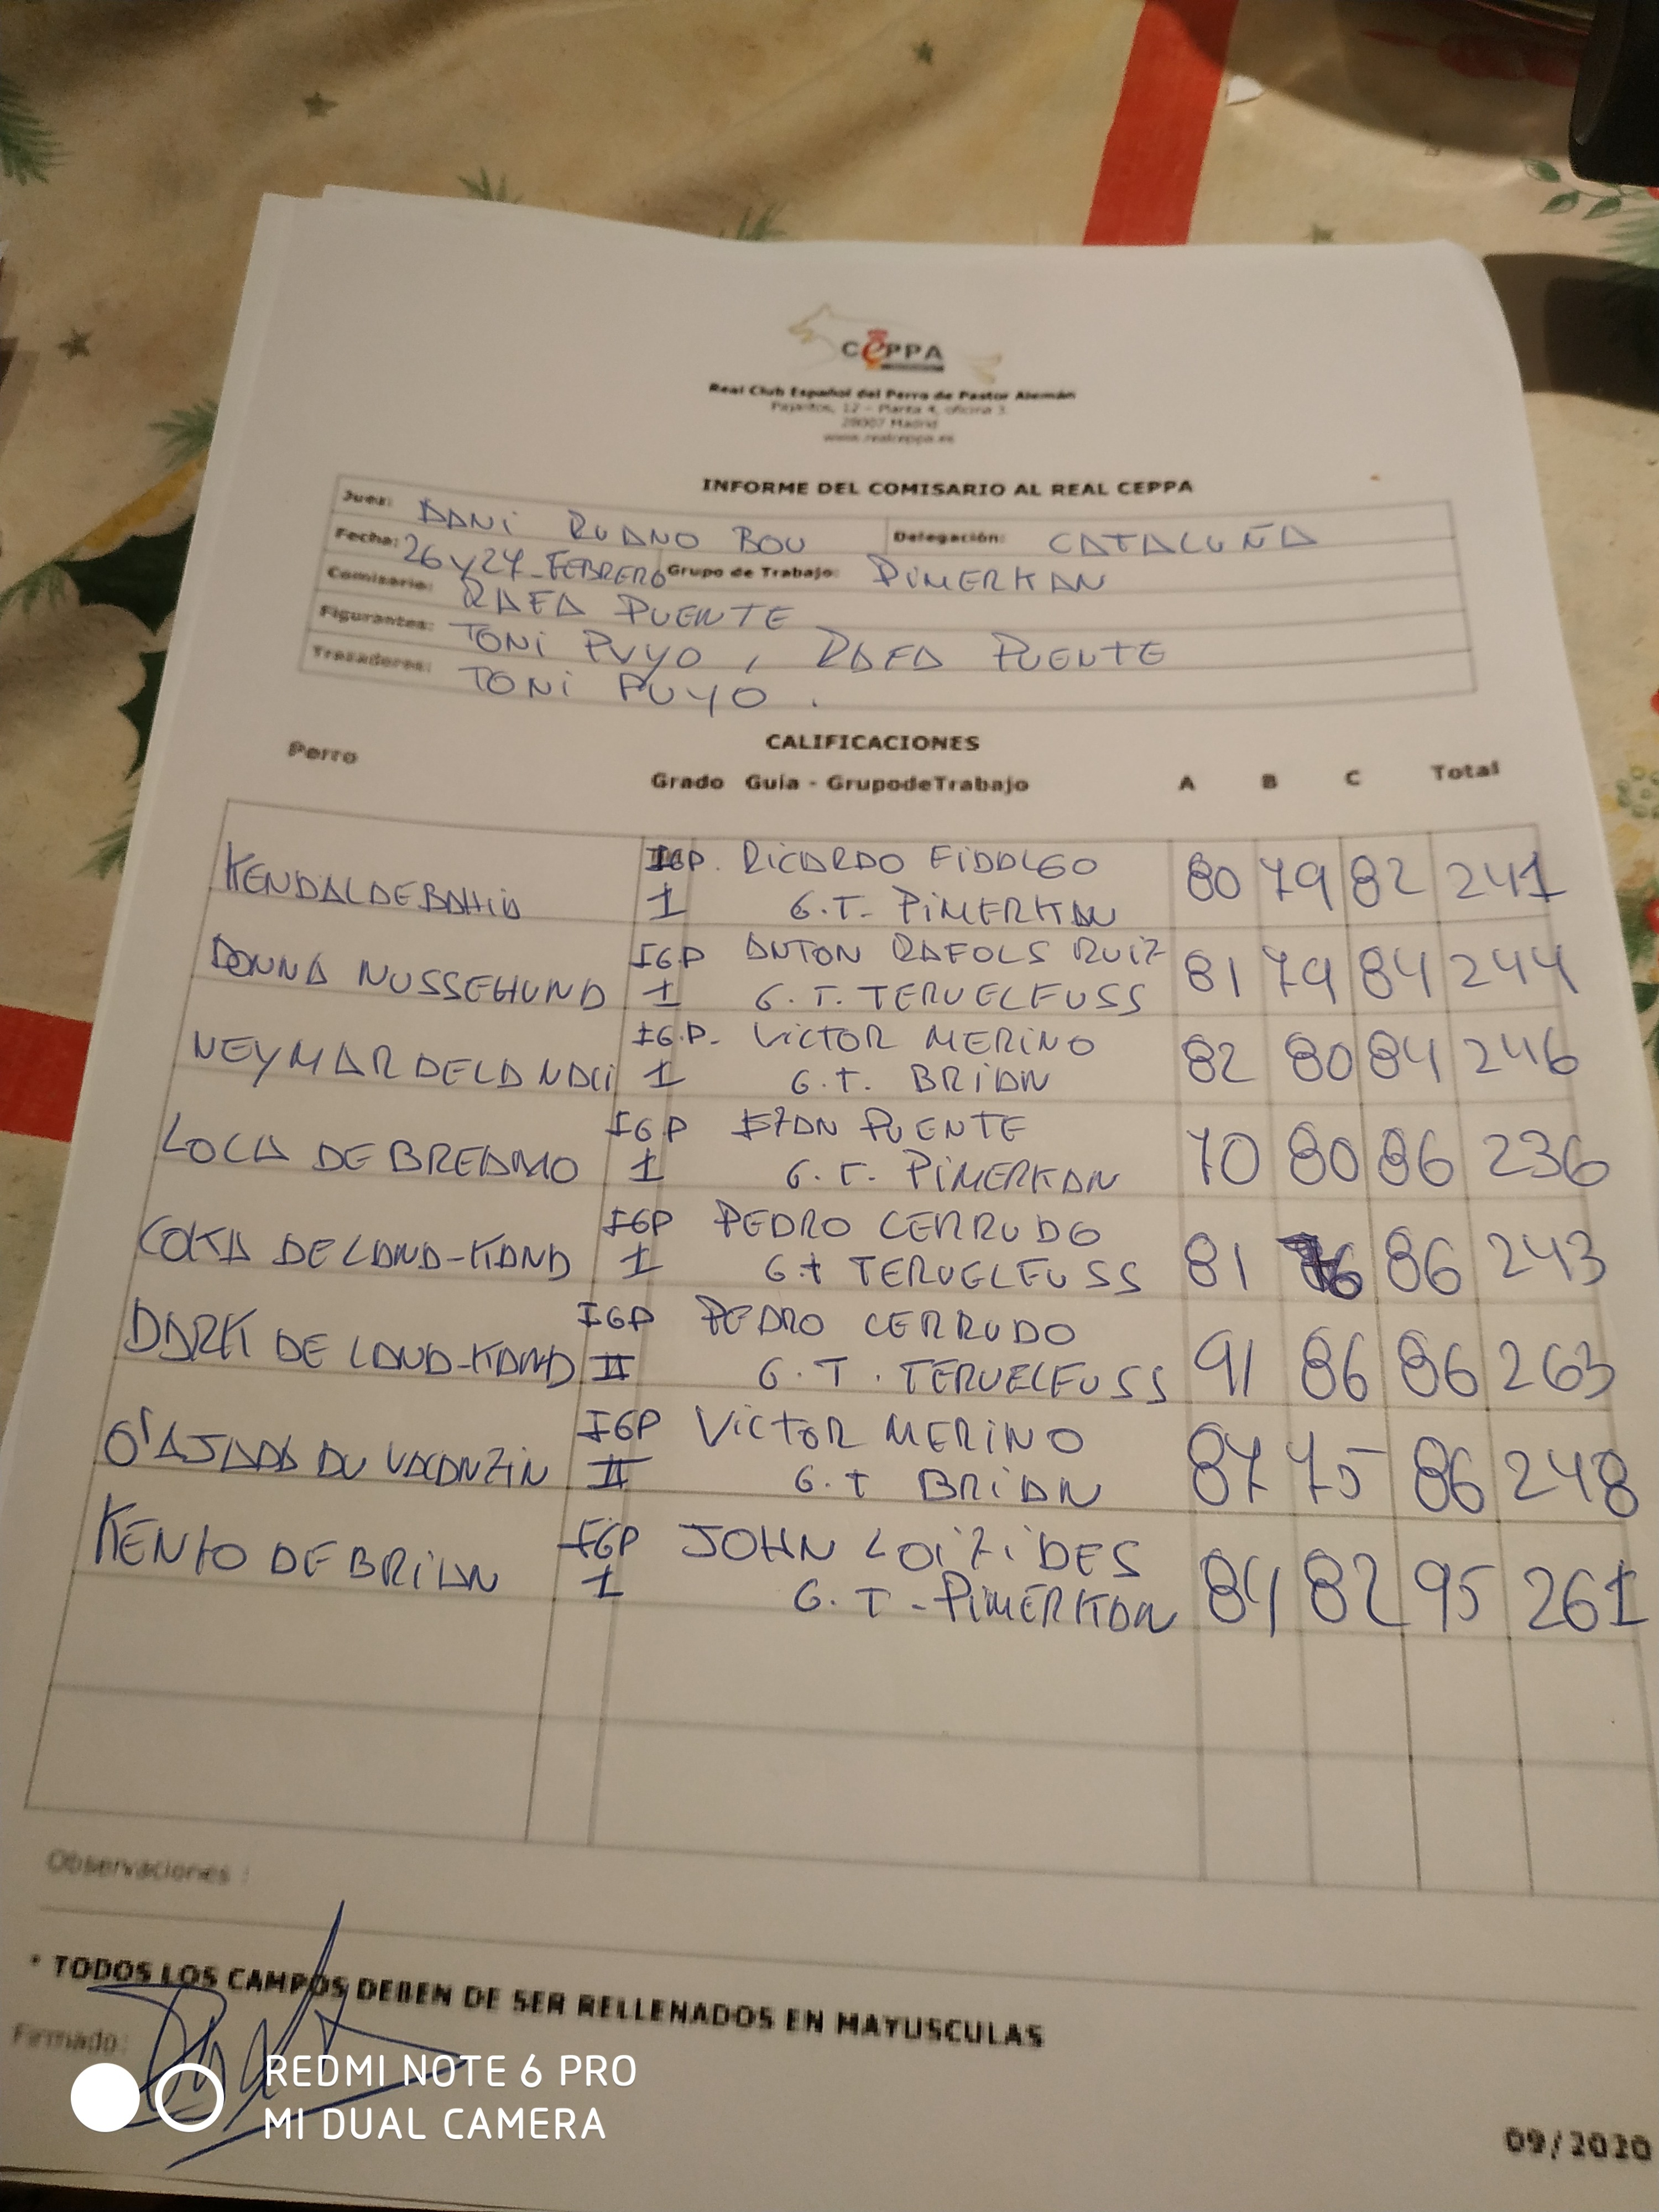 CEPPA
Real Club Español del Perro de Pastor Alemán
Pajaritos, 12 - Planta 4, oficina 3
28007 Madrid
www.realceppa.es
INFORME DEL COMISARIO AL REAL CEPPA
Juez: DANI RUANO BOU Delegación: CATALUÑA
Fecha: 26 Y 27 - FEBRERO Grupo de Trabajo: PIMERKAN
Comisario: RAFA PUENTE
Figurantes: TONI PUYO , RAFA PUENTE
Trazadores: TONI PUYO .
CALIFICACIONES
Perro Grado Guia - GrupodeTrabajo A B C Total
KENDAL DE BAHIA IGP. 1 RICARDO FIDALGO 80 79 82 241
G.T- PIMERKAN
DONNA NUSSEHUND IGP 1 ANTON RAFOLS RUIZ 81 79 84 244
G. T. TERUELFUSS
NEYMAR DE LA NALI I.G.P- 1 VICTOR MERINO 82 80 84 246
G.T. BRIAN
LOCA DE BREAMO IGP 1 IZAN PUENTE 70 80 86 236
G.T- PIMERKAN
COKA DE LAND-KAND IGP 1 PEDRO CERRUDO 81 76 86 243
G.t TERUELFUSS
DARK DE LAND-KAND IGP II PEDRO CERRUDO 91 86 86 263
G.T. TERUELFUSS
O'AJADA DU VACANZIN IGP II VICTOR MERINO 87 75 86 248
G.T BRIAN
KENTO DE BRIAN IGP 1 JOHN LOIZIDES 84 82 95 261
G. T - PIMERKAN
Observaciones :
* TODOS LOS CAMPOS DEBEN DE SER RELLENADOS EN MAYUSCULAS
Firmado:
REDMI NOTE 6 PRO
MI DUAL CAMERA
09/2020